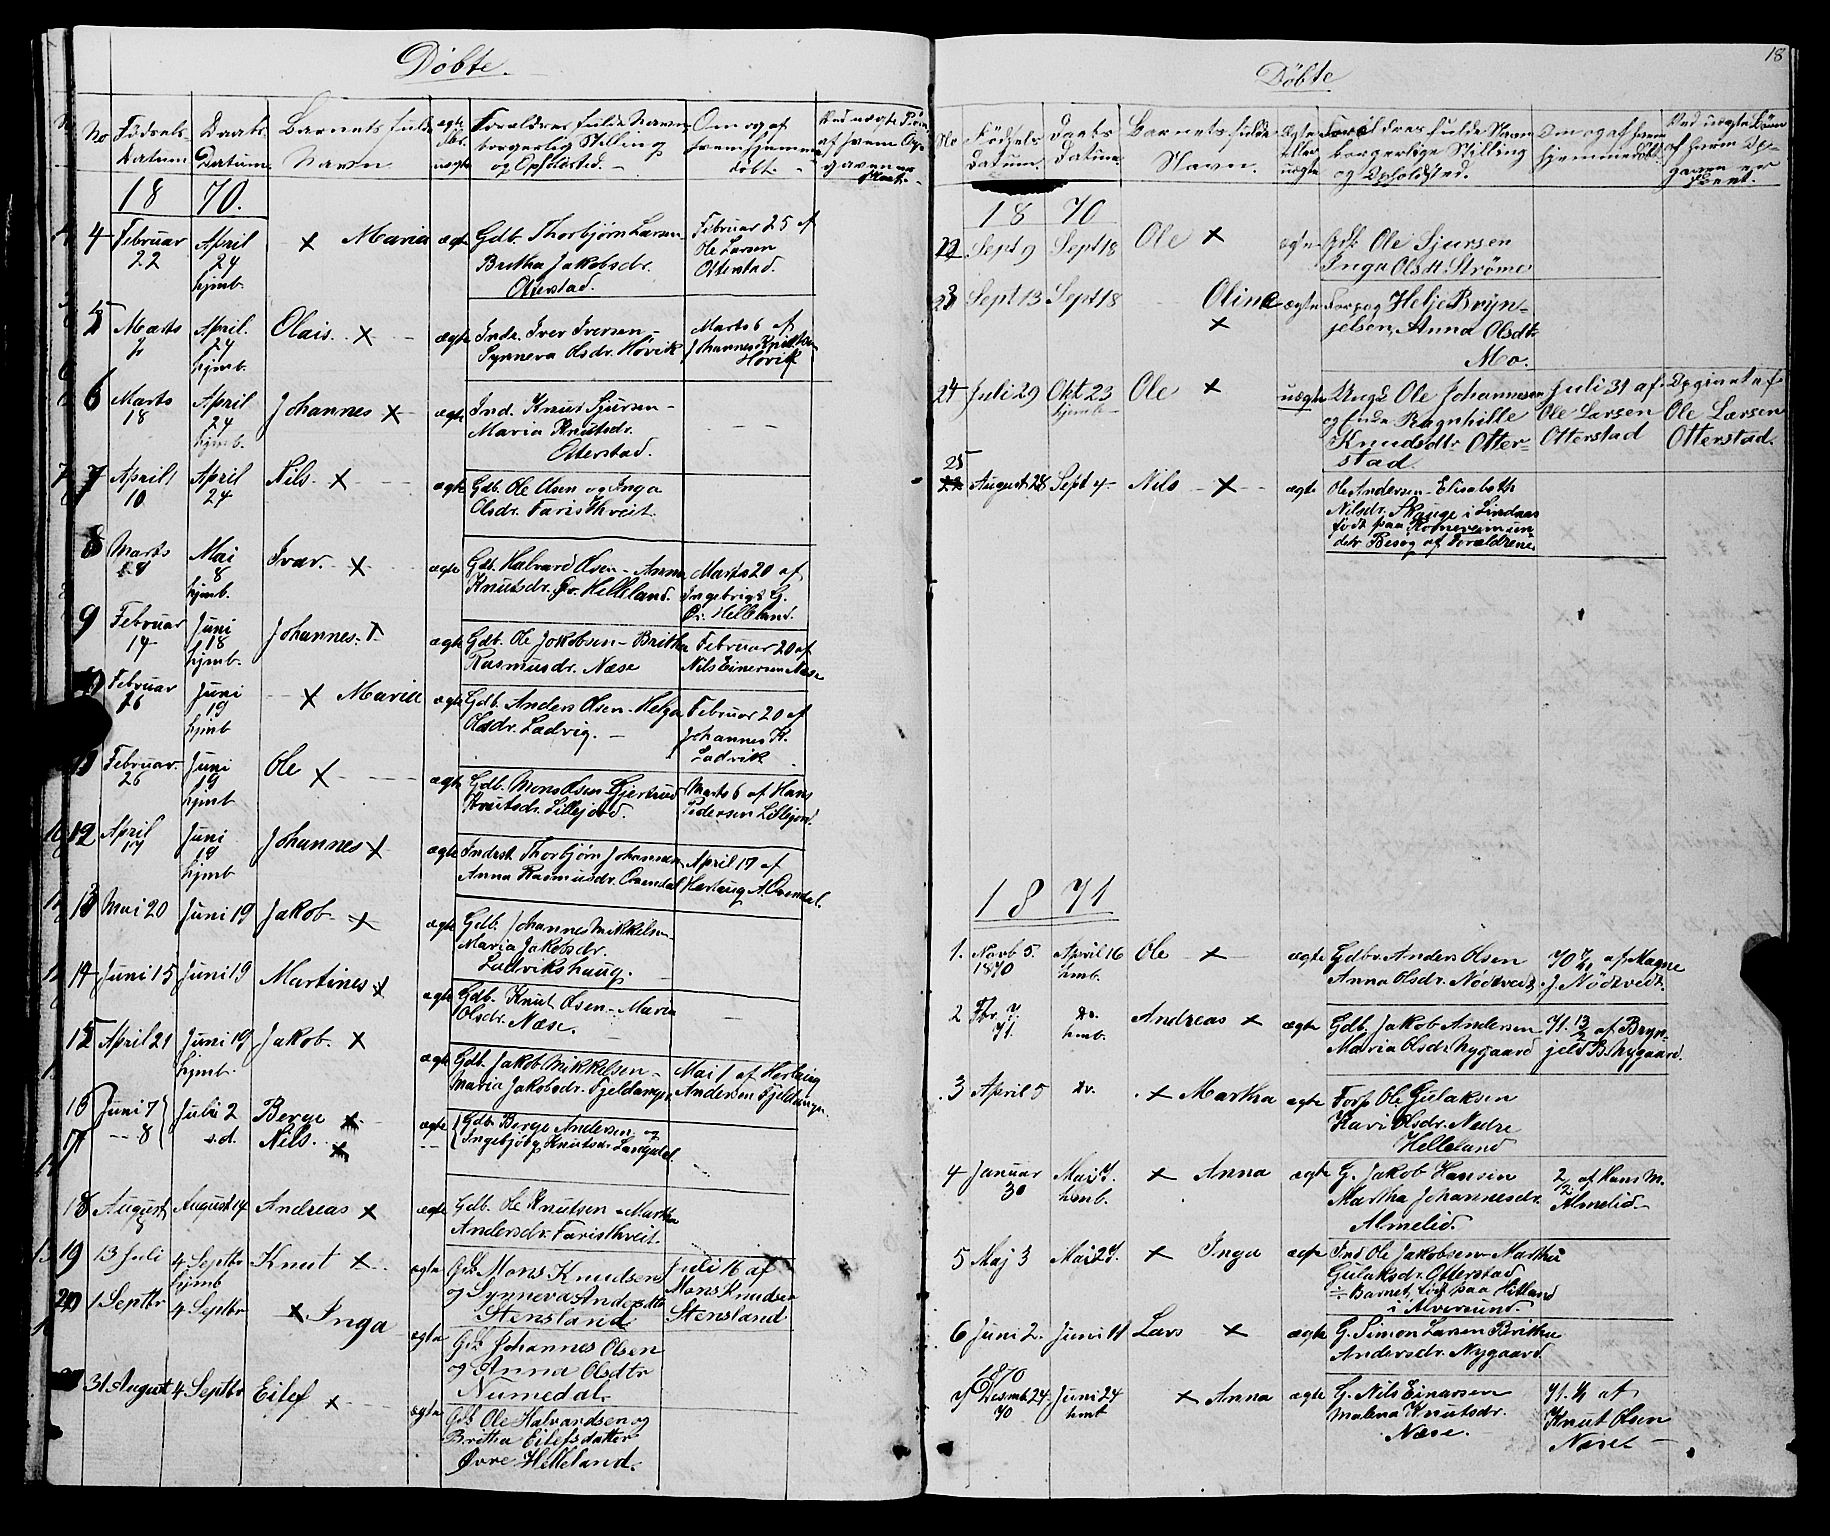 Döbte.
No
Födsels
Datum
Daabs
Datum
Barnets fulde
Navn
ægte
uægte
Forældres fulde Navn
borgerlig Stilling
og Opholdsted.
Om og af
hvem hjemme
döbt.
1870.
4 Februar
22
April
24
hjmb.
Maria
ægte
Gdb. Thorbjørn Larsen
Britha Jakobsdr.
Otterstad.
Februar 25 af
Ole Larsen
Otterstad.
5 Marts
April
24
hjmb.
Olais
ægte
Indr. Iver Iversen
Synneva Olsdr. Hovik
Marts 6 af
Johannes
Hovik
6 Marts
18
April
24
hjmb.
Johannes
ægte
Ind. Knut Sjursen
Maria Knutsdr.
Otterstad.
7 April
10
April
24
Nils
ægte
Gdb. Ole Olsen og Inga
Olsdr. Faristhveit.
8 Marts
Mai
8
hjmb.
Ivar
ægte
Gdb. Halvard Olsen - Anna
Knutsdr. Øv. Helleland.
Marts 20 af
Ingebrigt G.
Øv. Helleland.
9 Februar
14
Juni
18
hjmb.
Johannes
ægte
Gdb. Ole Jakobsen - Britha
Rasmusdr. Næse
Februar 20 af
Nils Einersen Næse
10 Februar
Juni
19
hjmb
Maria
ægte
Gdb. Anders Olsen - Helga
Olsdr. Ladvig.
Februar 20 af
Johannes K.
Ladvik
Februar
26
Juni
19
hjmb
Ole
ægte
Gdb. Mons Olsen Gjertrud
Knutsdr. Lillejord.
Marts 6 af Hans
Pedersen Lillejord.
12 April
17
Juni
19
hjmb
Johannes
ægte
Indrst Thorbjørn Johannesen
Anna Rasmusdr. Osendal
April 17 af
Herlaug A. Osendal.
13 Mai 20
Juni 19
Jakob
ægte
Gdb. Johannes Mikkelsen
Maria Jakobsdr.
Ladvikshaug.
14 Juni 15
Juni 19
Martines
ægte
Gdb. Knut Olsen - Maria
Olsdr. Næse.
15 April 21
Juni 19
hjmb.
Jakob
ægte
Gdb. Jakob Mikkelsen
Maria Jakobsdr. Fjeldanger
Mai 1 af Herlaug
Andersen Fjeldanger
16 Juni 7
17 -- 8
Juli 2
s.d.
Berge
Nils
ægte
Gdb Berge Andersen og
Ingebjørg Knutsdr.
18 August
August 14
Andreas
ægte
Gdb. Ole Knutsen - Martha
Andersdr. Faristhveit.
19 13 Juli
4 Septbr
hjmb
Knut
ægte
Gdb Mons Knudsen
og Synneva Andersdtr
Stensland
Juli 16 af
Mons Knudsen
Stensland
20 1 Septbr
4 Septbr
Inga
ægte
Gdb Johannes Olsen
og Anna Olsdtr
Numedal.
31 August
4 Septbr
Eilef
ægte
Gdb Ole Halvardsen og
Britha Eilefsdatter
Øvre Helleland.
18
Döbte
No
Födsels
datum.
Daabs
datum
Barnets fulde
Navn.
Ægte
eller
uægte
Forældres fulde Navn
borgerlige Stilling
og Opholdsted.
Om og af hvem
hjemmedöbt.
1870
22 Sept 9
Sept 18
Ole
ægte
Gdb Ole Sjursen
Inga Olsdtr Ströme
23 Sept 13
Sept 18
Oline
ægte
Forpag Helje Bryn-
jelsen, Anna Olsdtr
Mo.
24 Juli 29
Okt 23
hjemb
Ole
uægte
Ungk Ole Johannesen
og Enke Ragnhille
Knudsdtr Otter-
stad
Juli 31 af
Ole Larsen
Otterstad
Opgivet af
Ole Larsen
Otterstad.
25
August 28
Sept 4
Nils
ægte
Ole Andersen - Elisabeth
Nilsdr. Skauge i Lindaas
födt paa Romereim un-
der Besøg af Forældrene
1871
1. Novb 5.
1870
April 16
hmb.
Ole
ægte
Gdbr. Anders Olsen
Anna Olsdr. Nödtveidt
70 af Magne
J. Nödtveidt.
2 Fbr 7.
71.
do.
hmb.
Andreas
ægte
Gdb. Jakob Andersen
Maria Olsdr Nygaard
71. 13/2 af Bryn-
jeld B. Nygaard.
3 April 5
do.
Martha
ægte
Forp Ole Gulaksen
Kari Olsdr. Nedre
Helleland
4 Januar
30
Mai 7.
hmb.
Anna
ægte
G. Jakob Hansen
Martha Johannesdr.
Almelid.
2/2 af Hans M.
Almelid
5 Maj 3
Mai 27.
Inga
ægte
Ind Ole Jakobsen - Martha
Gulaksdr. Otterstad
÷ Barnet födt paa Hilland
i Alversund.
6 Juni 2.
Juni 11
Lars
ægte
G. Simon Larsen Britha
Andersdr. Nygaard
1870
7 Desmb 24
70
Juni 24
hmt
Anna
ægte
G. Nils Einarsen
Malena Knutsdr.
Næse.
71. 1/1 af
Knut Olsen
Næse